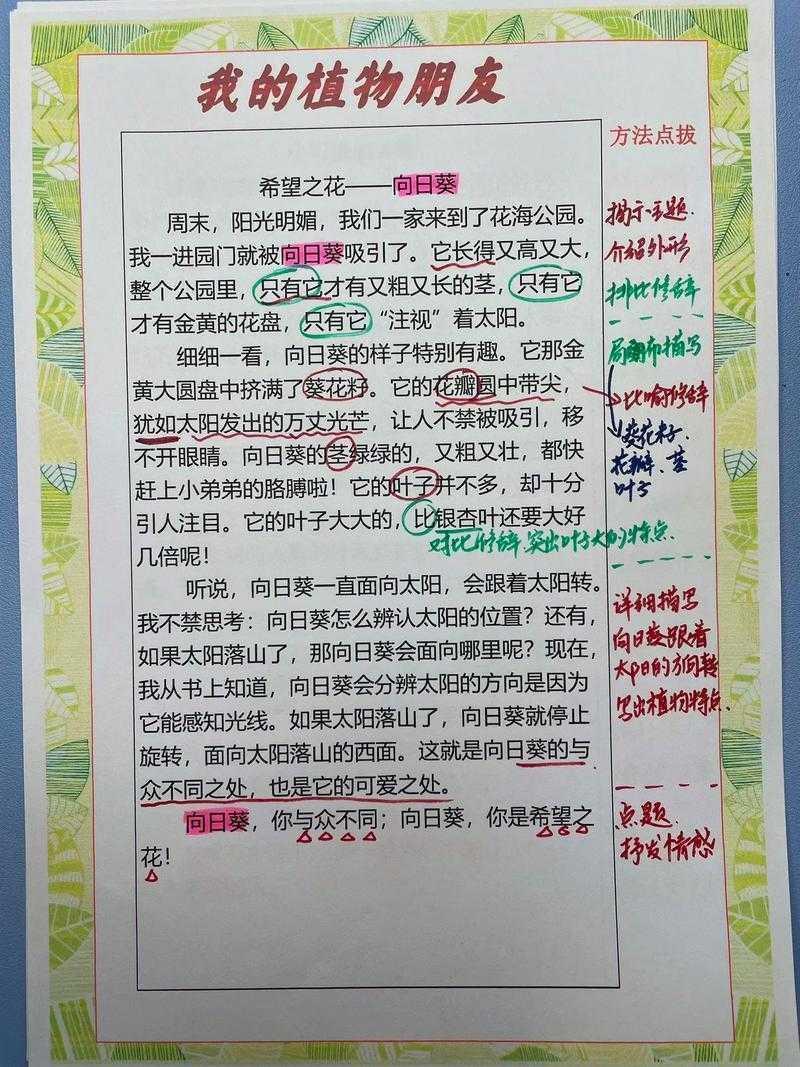 我的植物朋友
方法点拨
希望之花——向日葵
周末，阳光明媚，我们一家来到了花海公园。
我一进园门就被向日葵吸引了。它长得又高又大，
整个公园里，只有它才有又粗又长的茎，只有它
才有金黄的花盘，只有它“注视”着太阳。
细细一看，向日葵的样子特别有趣。它那金
黄大圆盘中挤满了葵花籽。它的花瓣圆中带尖，
犹如太阳发出的万丈光芒，让人不禁被吸引，移
不开眼睛。向日葵的茎绿绿的，又粗又壮，都快
赶上小弟弟的胳膊啦！它的叶子并不多，却十分
引人注目。它的叶子大大的，比银杏叶还要大好
几倍呢！
对比修辞 突出叶子大的特点.
听说，向日葵一直面向太阳，会跟着太阳转。
我不禁思考：向日葵怎么辨认太阳的位置？还有，
如果太阳落山了，那向日葵会面向哪里呢？现在，
我从书上知道，向日葵会分辨太阳的方向是因为
它能感知光线。如果太阳落山了，向日葵就停止
旋转，面向太阳落山的西面。这就是向日葵的与
众不同之处，也是它的可爱之处。
向日葵，你与众不同；向日葵，你是希望之
花！
揭示主题.
介绍外形
排比修辞
局部描写
比喻修辞
葵花籽、
花瓣、茎
叶子
详细描写
向日葵跟着
太阳的方向转
写出植物特点.
点题.
抒发情感